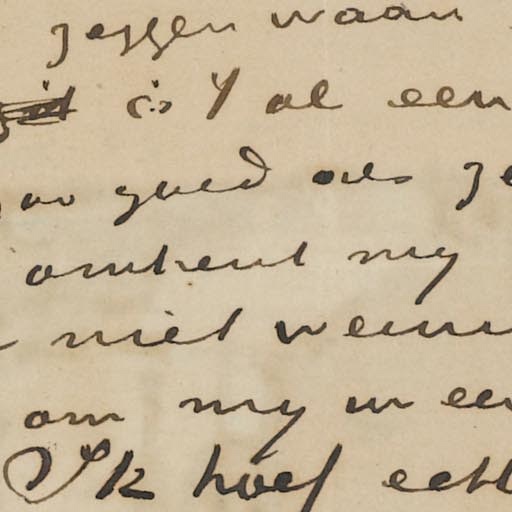 zeggen waar
is 't al een
zoo goed als ze
omtrent my
niet wein
om my in een
Ik hoef echt